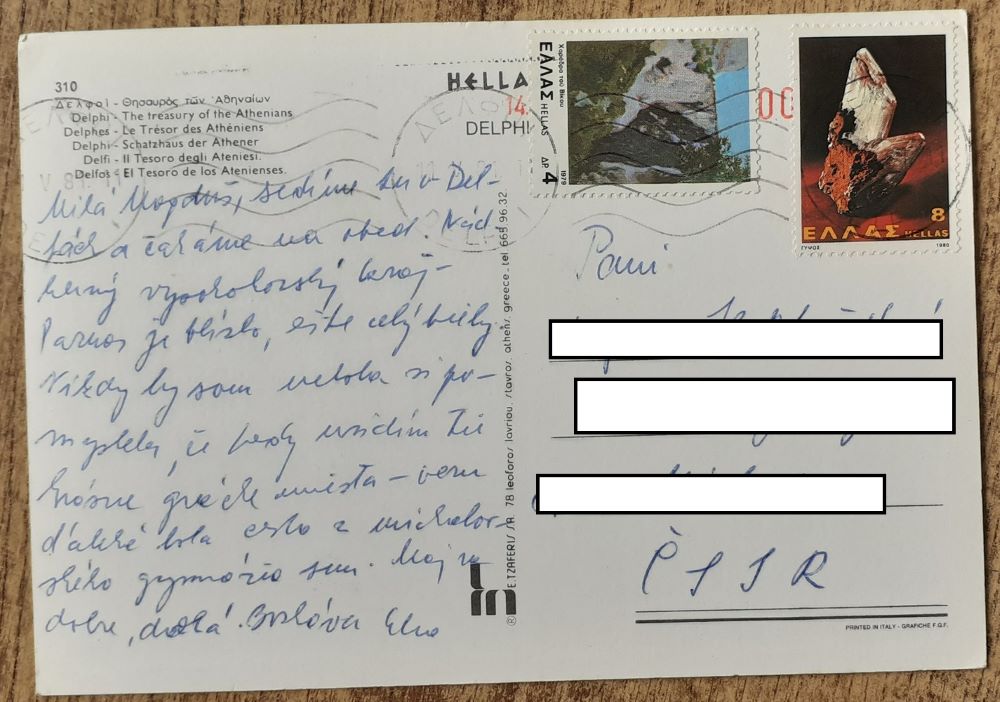 310
Δελφοί - Θησαυρός τῶν Ἀθηναίων
Delphi - The treasury of the Athenians
Delphes - Le Trésor des Athéniens
Delphi - Schatzhaus der Athener
Delfi - Il Tesoro degli Ateniesi.
Delfos - El Tesoro de los Atenienses.
Milá sedíme tu v Del-
fách a čakáme na obed. Nád-
herný vysokohorský kraj-
Parnas je blízko, ešte celý biely.
Nikdy by som nebola si po-
myslela, že tedy uvidím tie
krásne grécke miesta - veru
ďaleká bola cesta z michalov-
ského gymnázia sem. Maj sa
dobre, drahá. Elena
E. TZAFERIS S.A. 78 leoforos lavriou, stavros, athens, greece - tel 665.96.32
HELLA
14.
DELPHI
00
Χαράδρα του Βίκου
ΕΛΛΑΣ HELLAS
ΔΡ 4
1979
8
ΕΛΛΑΣ HELLAS
ΓΥΨΟΣ 1980
Pani
ČSSR
PRINTED IN ITALY - GRAFICHE F.G.F.